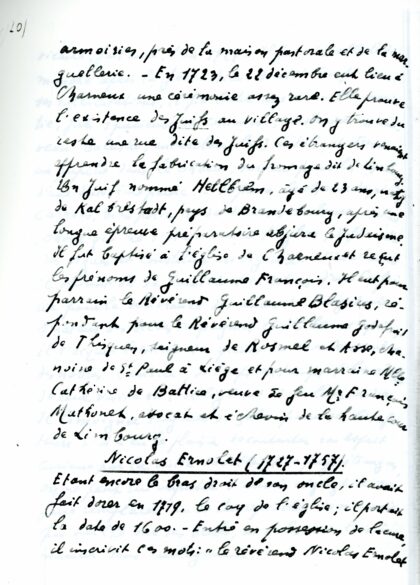 20/
armoiries, près de la maison pastorale et de la mar-
guellerie. - En 1723, le 22 décembre eut lieu à
Charneux une cérémonie assez rare. Elle prouve
l'existence des Juifs au village. On y trouve du
reste une rue dite des Juifs. Ces étrangers venaient
apprendre la fabrication du fromage dit de Limbourg.
Un Juif nommé âgé de 23 ans, natif
de pays de Brandebourg, après une
longue épreuve préparatoire abjura le judaïsme.
Il fut baptisé à l'église de Charneux et reçut
les prénoms de Guillaume François. Il eut pour
parrain le Révérend Guillaume Blasius, ré-
pondant pour le Révérend Guillaume Godefroid
de Thisquen, seigneur de Rosmel et Asse, cha-
noine de St Paul à Liège et pour marraine Mlle
Cathérine de Battice, veuve de feu Mr François
Mathonet, avocat et échevin de la haute cour
de Limbourg.
Nicolas Ernolet (1727-1757).
Etant encore le bras droit de son oncle, il avait
fait dorer en 1719, le coq de l'église ; il portait
la date de 1600. - Entré en possession de la cure
il inscrivit ces mots : "le révérend Nicolas Ernolet